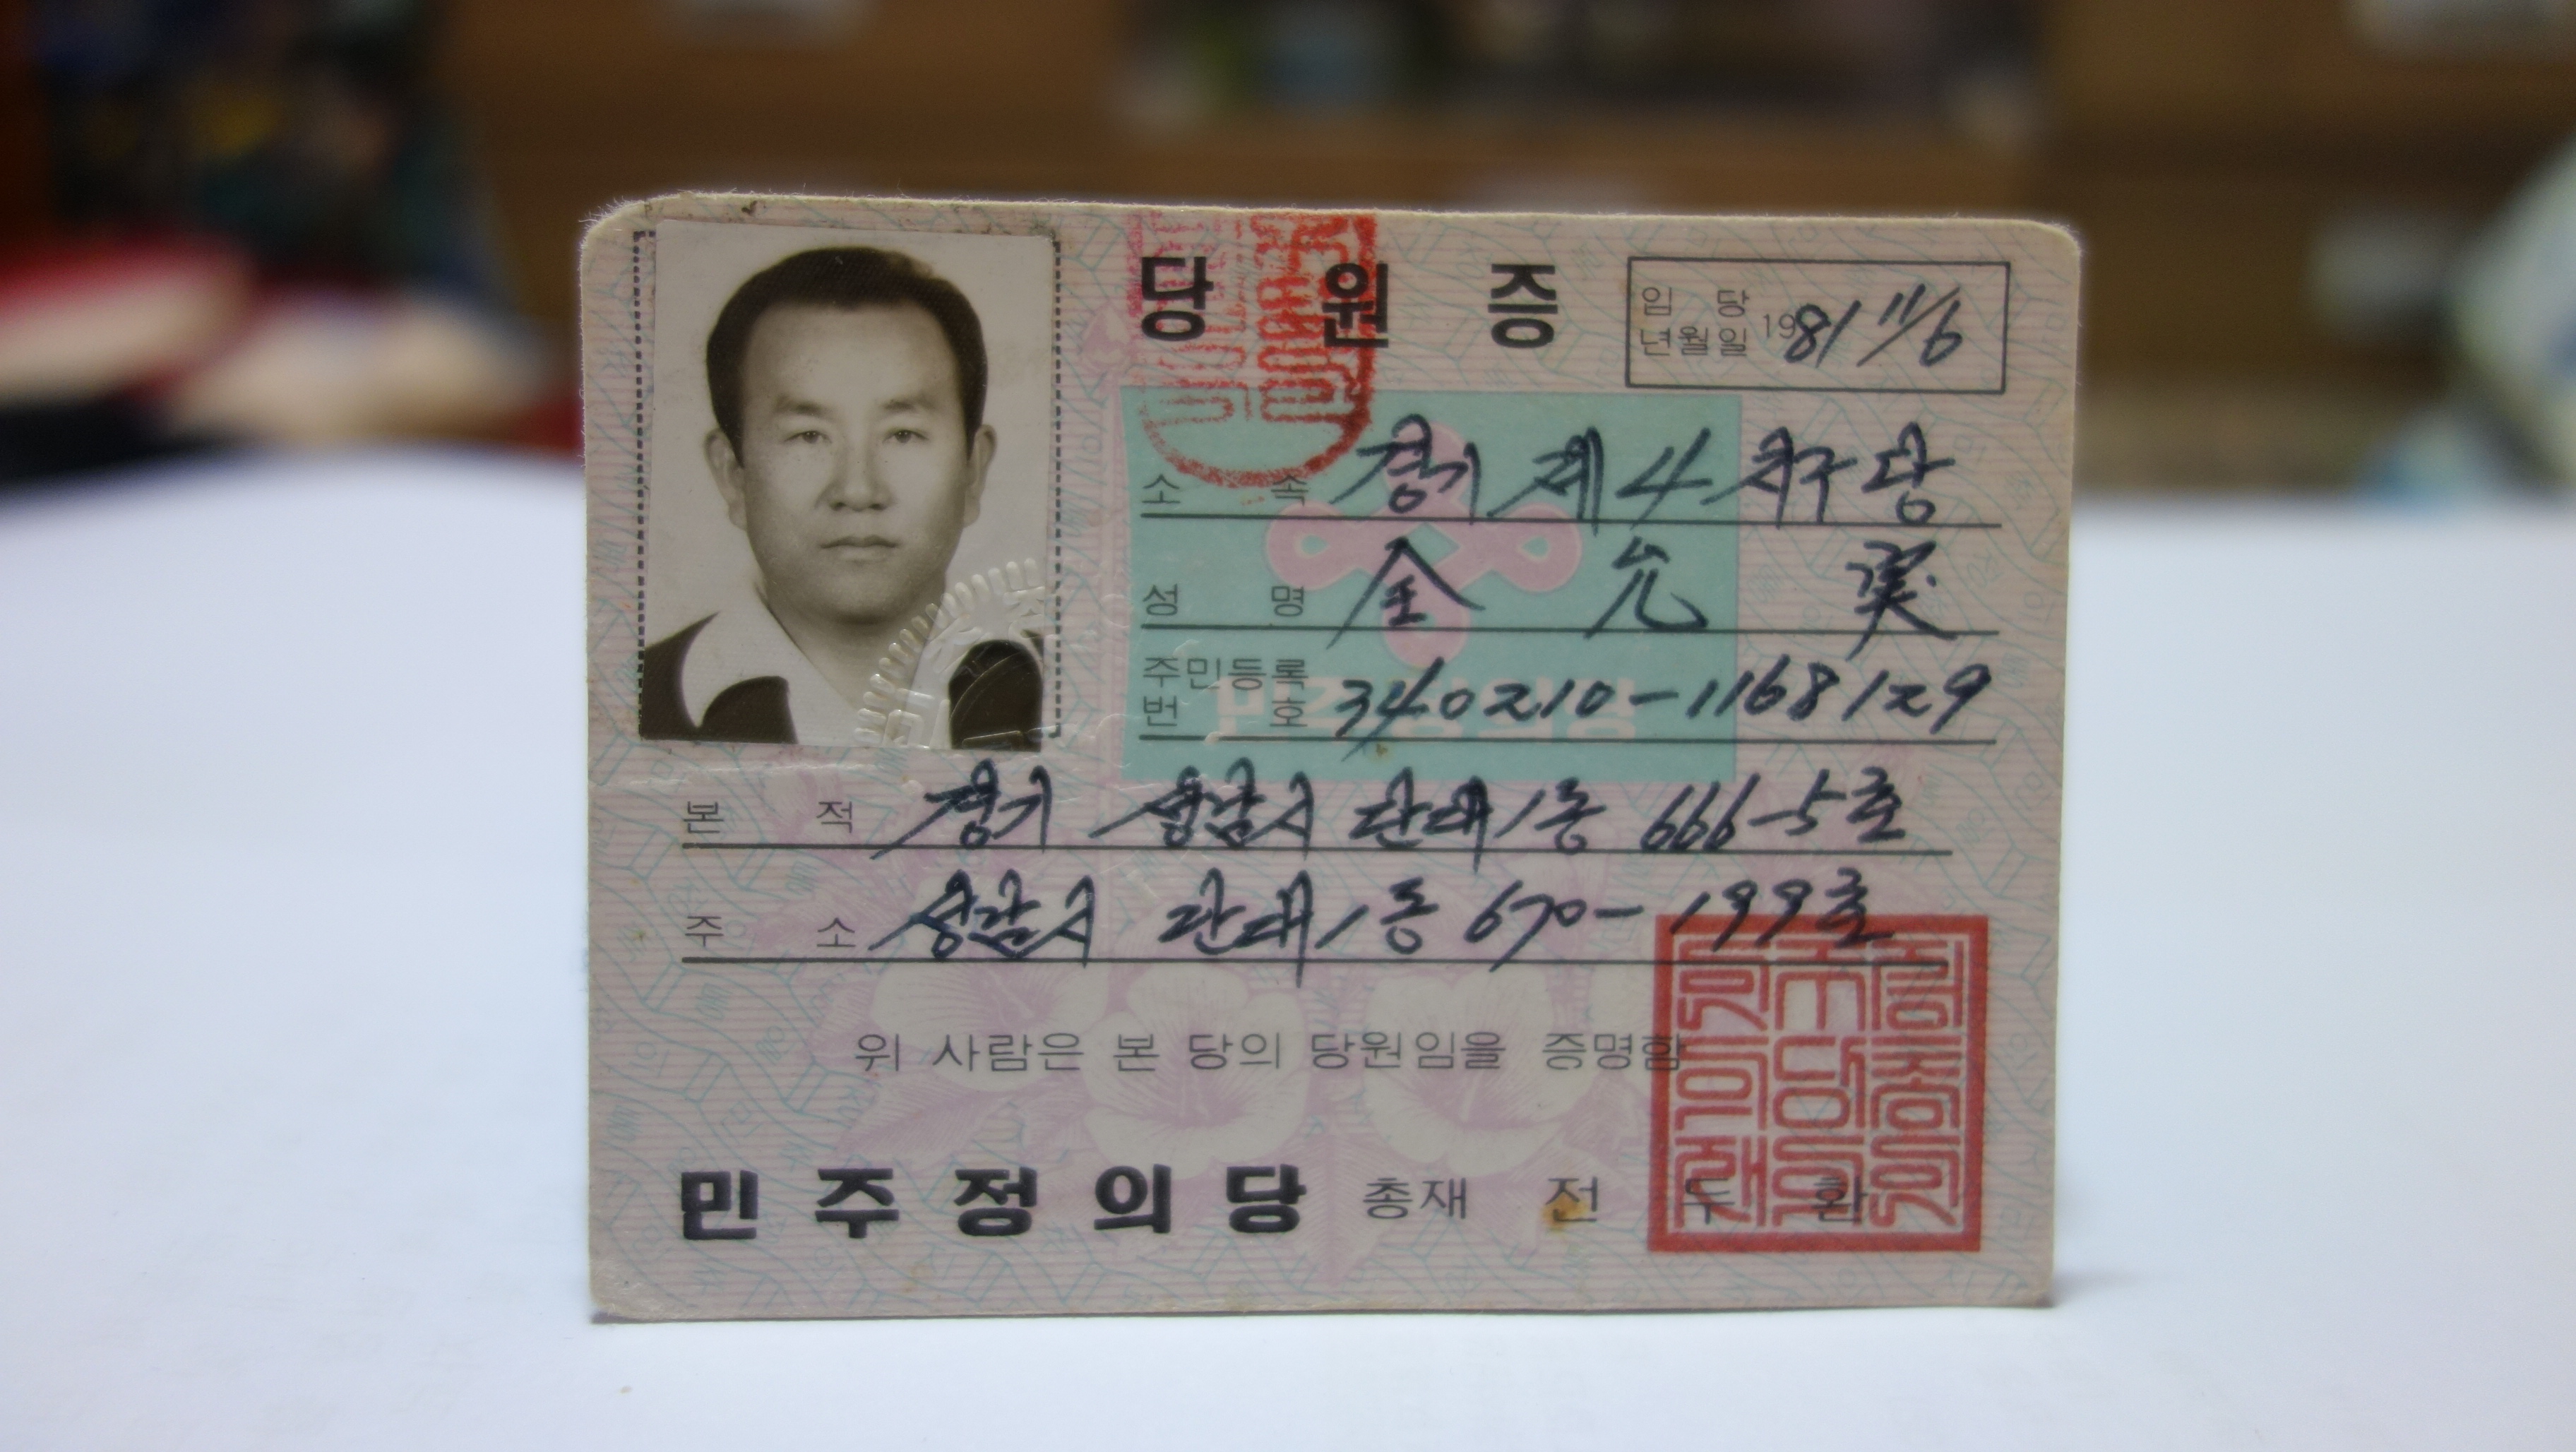 당 원 증
입 당
년월일 1981 11/6
소 속 경기 제4지구당
성 명 全 允
주민등록
번 호 340210-1168129
민주정의당
본 적 경기 성남시 단대1동 666-5호
주 소 성남시 단대1동 670-199호
위 사람은 본 당의 당원임을 증명함
민주정의당 총재 전 두 환